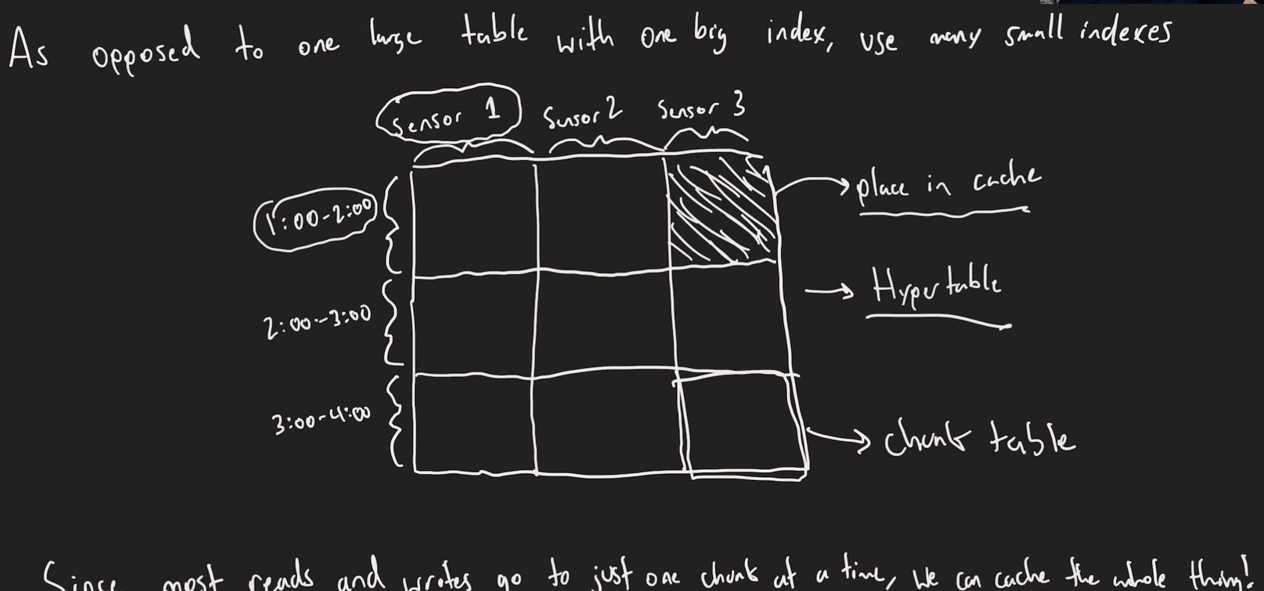 As opposed to one large table with one big index, use many small indexes
Sensor 1 Sensor 2 Sensor 3
1:00-2:00
place in cache
Hypertable
2:00-3:00
3:00-4:00
chunk table
Since most reads and writes go to just one chunk at a time, we can cache the whole thing!